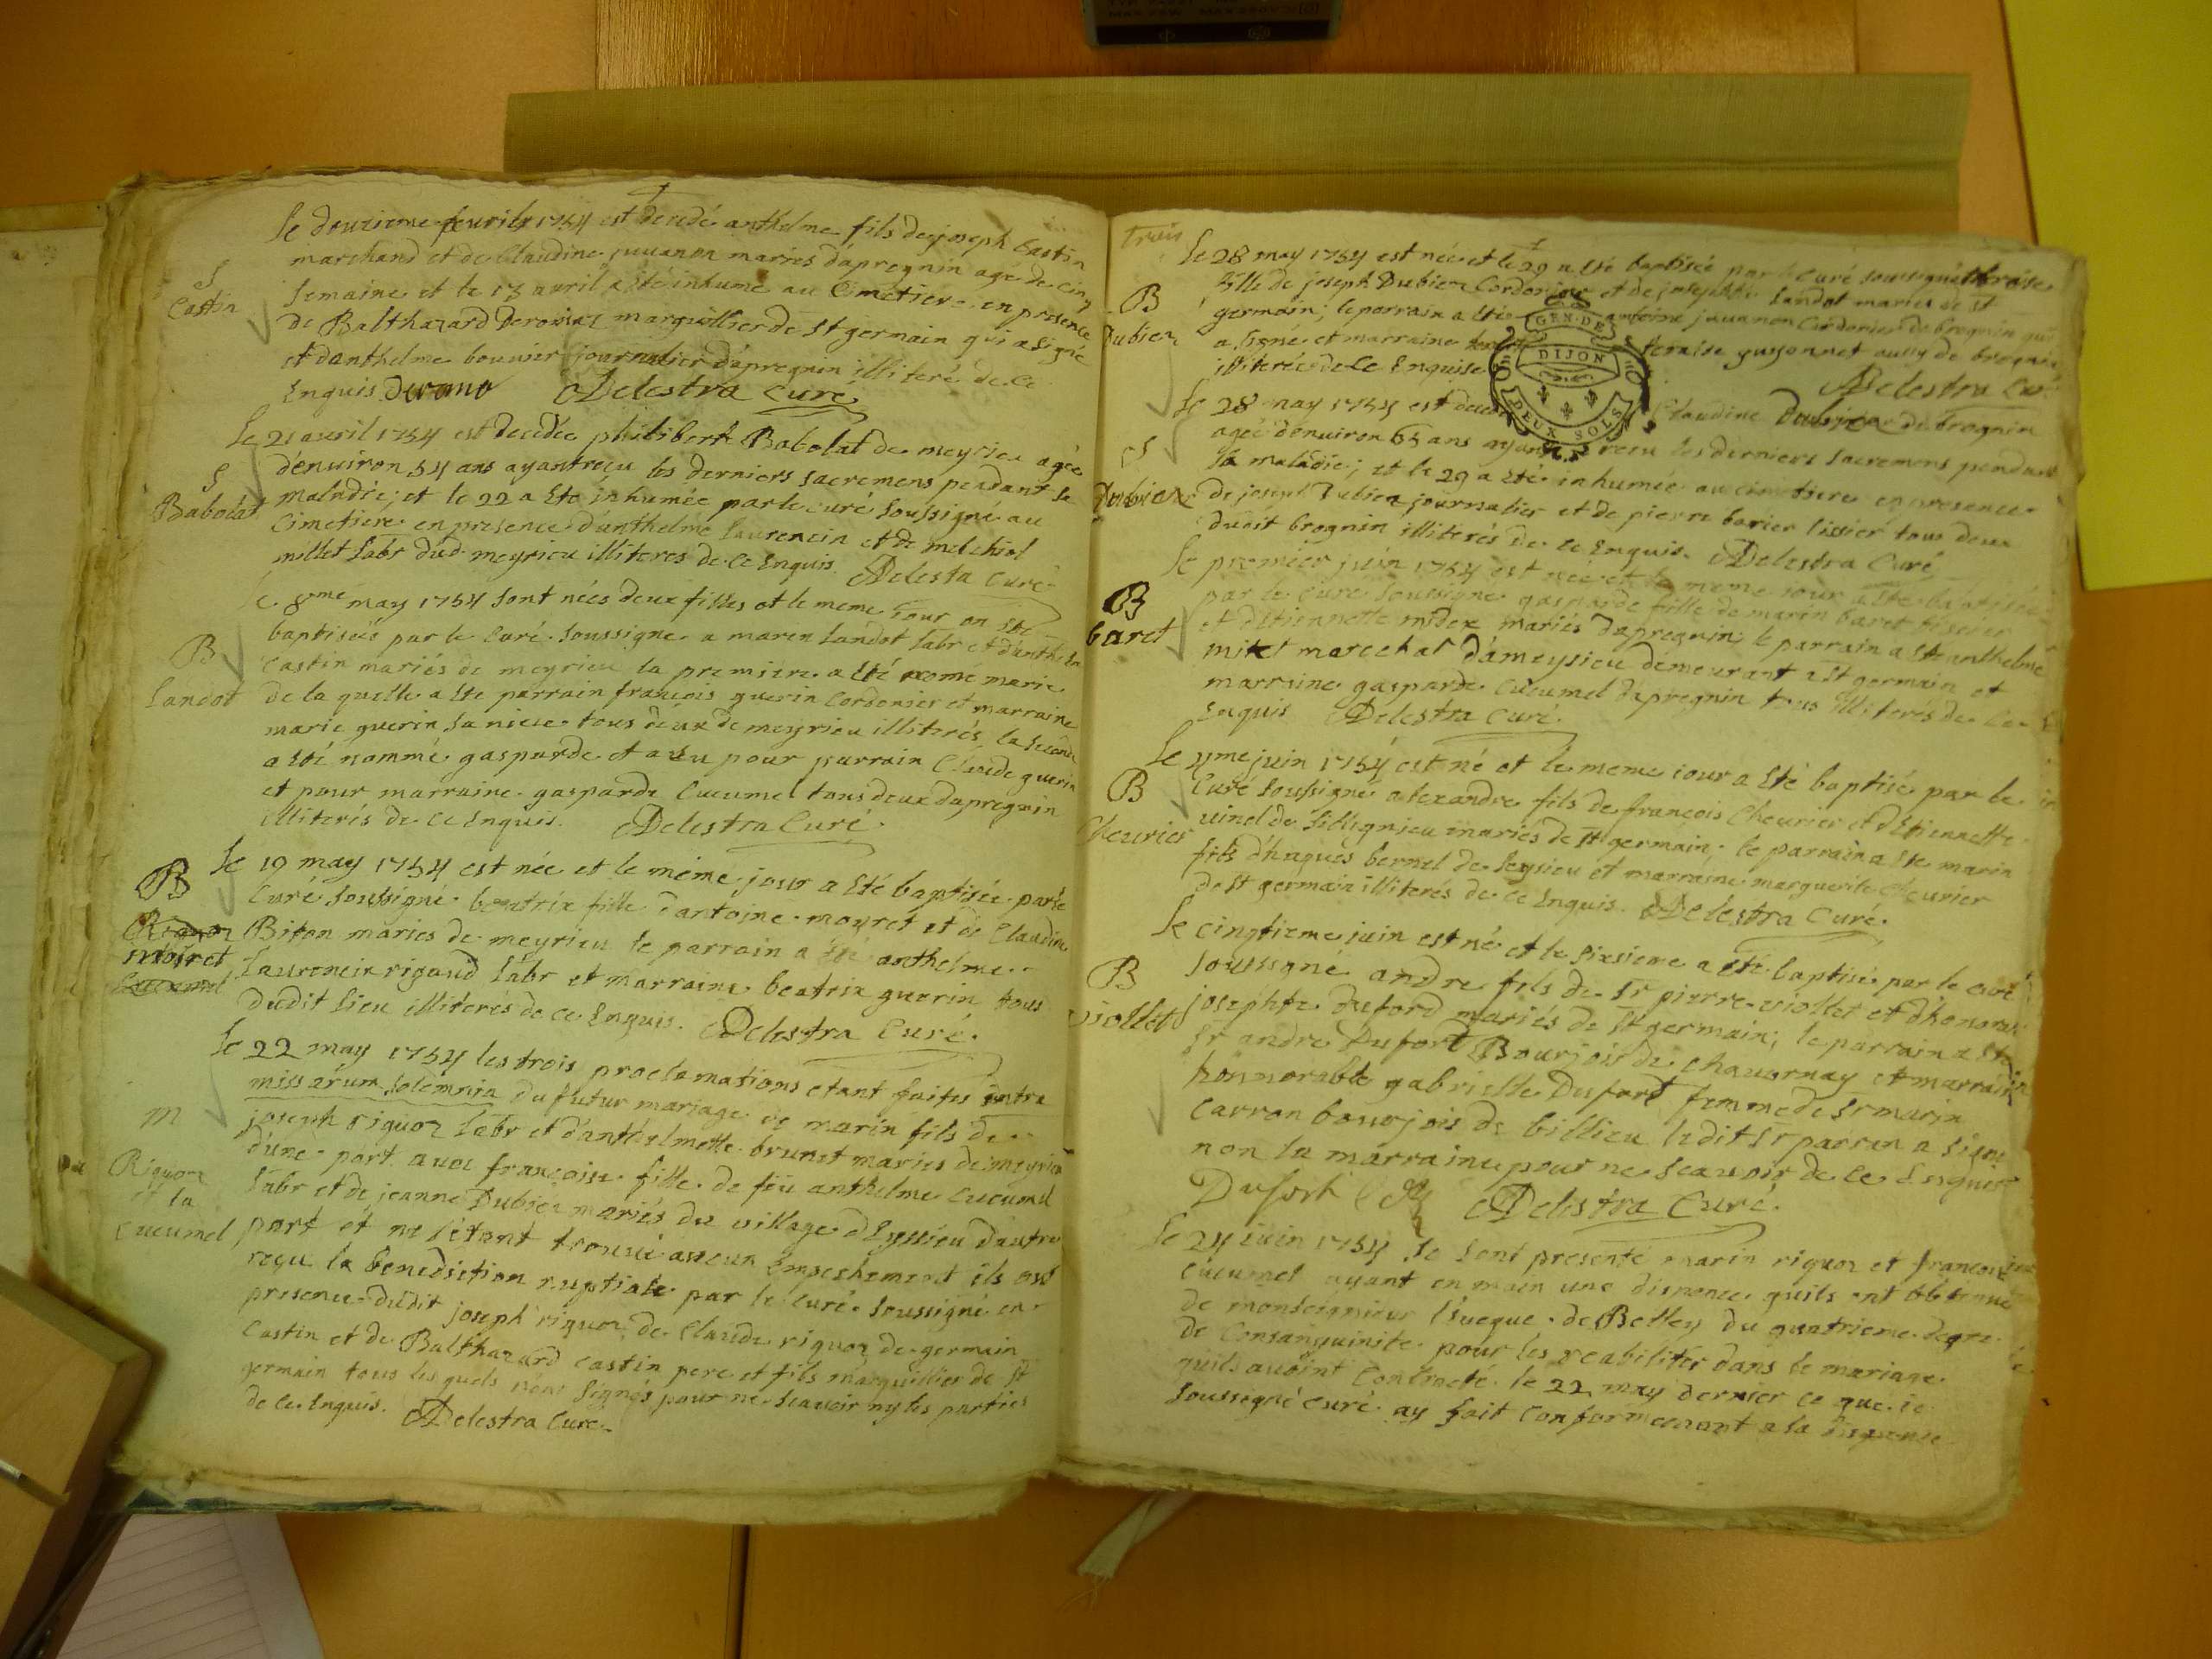 Le deuzieme fevrily 1754 est decedé anthelme fils de joseph Castin
marchand et de Claudine juuanon mariés dapregnin agé de cinq
S
Castin
semaine et le 13 avril a ité inhumé au Cimetiere en presence
de Balthazard marguillier de st germain qui a signé
et danthelme bouuier journalier dapregnin illiteré de ce
Enquis ADelestra Curé
Le 21 avril 1754 est decedée philiberte Babolat de meyrieu agée
d'enuiron 54 ans ayant reçu les derniers sacremens pendant sa
S
Babolat
maladie; et le 22 a été inhumée par le curé soussigné au
Cimetiere en presence d'anthelme laurencin et de melchiol
millet labr dud. meyrieu illiteres de ce Enquis. ADelesta Curé
me may 1754 sont néés deux filles et le meme iour on été
baptiséés par le Curé soussigne a maren landot labr et d'anthel
B
Landot
Castin mariés de meyrieu la premiere a été nomé marie
de la quelle a été parrain francois guerin Cordonier et marraine
marie guerin sa niece tous deux de meyrieu illiterés, la seconde
a été nommé gasparde et a eu pour parrain Claude guerin
et pour marraine gasparde Cucumel tous deux dapregnin
illiterés de ce Enquis. ADelestra Curé.
Le 19 may 1754 est née et le même jour a été baptisée par le
B
moiret
Curé soussigné beatrix fille d'antoine moyret et de Claudine
Biton mariés de meyrieu le parrain a été anthelme
Laurencin rigaud labr et marraine beatrix guerin tous
dudit lieu illiterés de ce Enquis. ADelestra Curé.
Le 22 may 1754 les trois proclamations etant faites intra
missarum solemnia du futur mariage de marin fils de
M
Riguoz
et la
Cucumel
joseph riguoz labr et d'anthelmette brunet mariés de meyrieu
d'une part avec françoise fille de feu anthelme Cucumel
labr et de jeanne Dubiez mariés du village dEyssieu dautre
part et ne s'étant trouué aucun empeschement ils ont
reçu la benediction nuptiale par le Curé soussigné en
presence dudit joseph riguoz, de Claude riguoz de germain
Castin et de Balthazard Castin pere et fils marguillier de st
germain tous lesquels n'ont signés pour ne scauoir ny les parties
de ce Enquis. ADelestra Curé.
trois
Le 28 may 1754 est née et le 29 a été baptisée par le Curé soussigné theraise
B
Dubiez
fille de joseph Dubiez Cordonier et de josephte landot mariés de st
germain; le parrain a été antoine juuanon Cordonier de brognin qui
a signé et marraine teraise guyonnet aussy de brognin
illiterée de ce Enquise ADelestra Cur
GEN. DE
DIJON
DEUX SOLS
Le 28 may 1754 est deced Claudine Dubiez de brognin
S
Dubiez
agée d'enuiron 65 ans ayant recu les derniers sacremens pendant
sa maladie; et le 29 a été inhumée au cimetiere en presence
de joseph Dubiez journalier et de pierre barier tissier tous deux
dudit brognin illiterés de ce Enquis. ADelestra Curé
Le premier juin 1754 est née et le meme iour a été baptisée
B
baret
par le Curé soussigné gasparde fille de marin baret tissier
et d'Etiennette midex mariés dapregnin le parrain a été anthelme
mitet marechal d'ameysieu demeurant a st germain et
marraine gasparde Cucumel dapregnin tous illiterés de ce
Enquis ADelestra Curé.
Le me juin 1754 est né et le meme iour a été baptisé par le
B
Cheurier
Curé soussigné alexandre fils de francois Cheurier et d'Etiennette
uinel de sillignieu mariés de st germain. le parrain a été marin
fils d'huques bernel de seysieu et marraine marguerite Cheurier
de st germain illiterés de ce Enquis. ADelestra Curé.
Le cinqtieme juin est né et le sixsieme a été baptisé par le curé
B
viollet
soussigné andre fils de sr pierre viollet et d'honorable
josephte duford mariés de st germain; le parrain a été
sr andre Dufort Bourjois de chauornay et marraine
honnorable gabrielle Dufort femme de sr marin
Carron bourjois de billieu ledit sr parren a signe
non la marraine pour ne scauoir de ce Enquise
Dufort ADelestra Curé.
Le 24 juin 1754 se sont presenté marin riguoz et francoise
Cucumel ayant en main une dispence quils ont obtenue
de monseigneur l'éueque de Belley du quatrieme degre
de Consanguinite pour les reabiliter dans le mariage
quils auoint Contracté le 22 may dernier ce que ie
soussigné curé ay fait conformement a la dispence